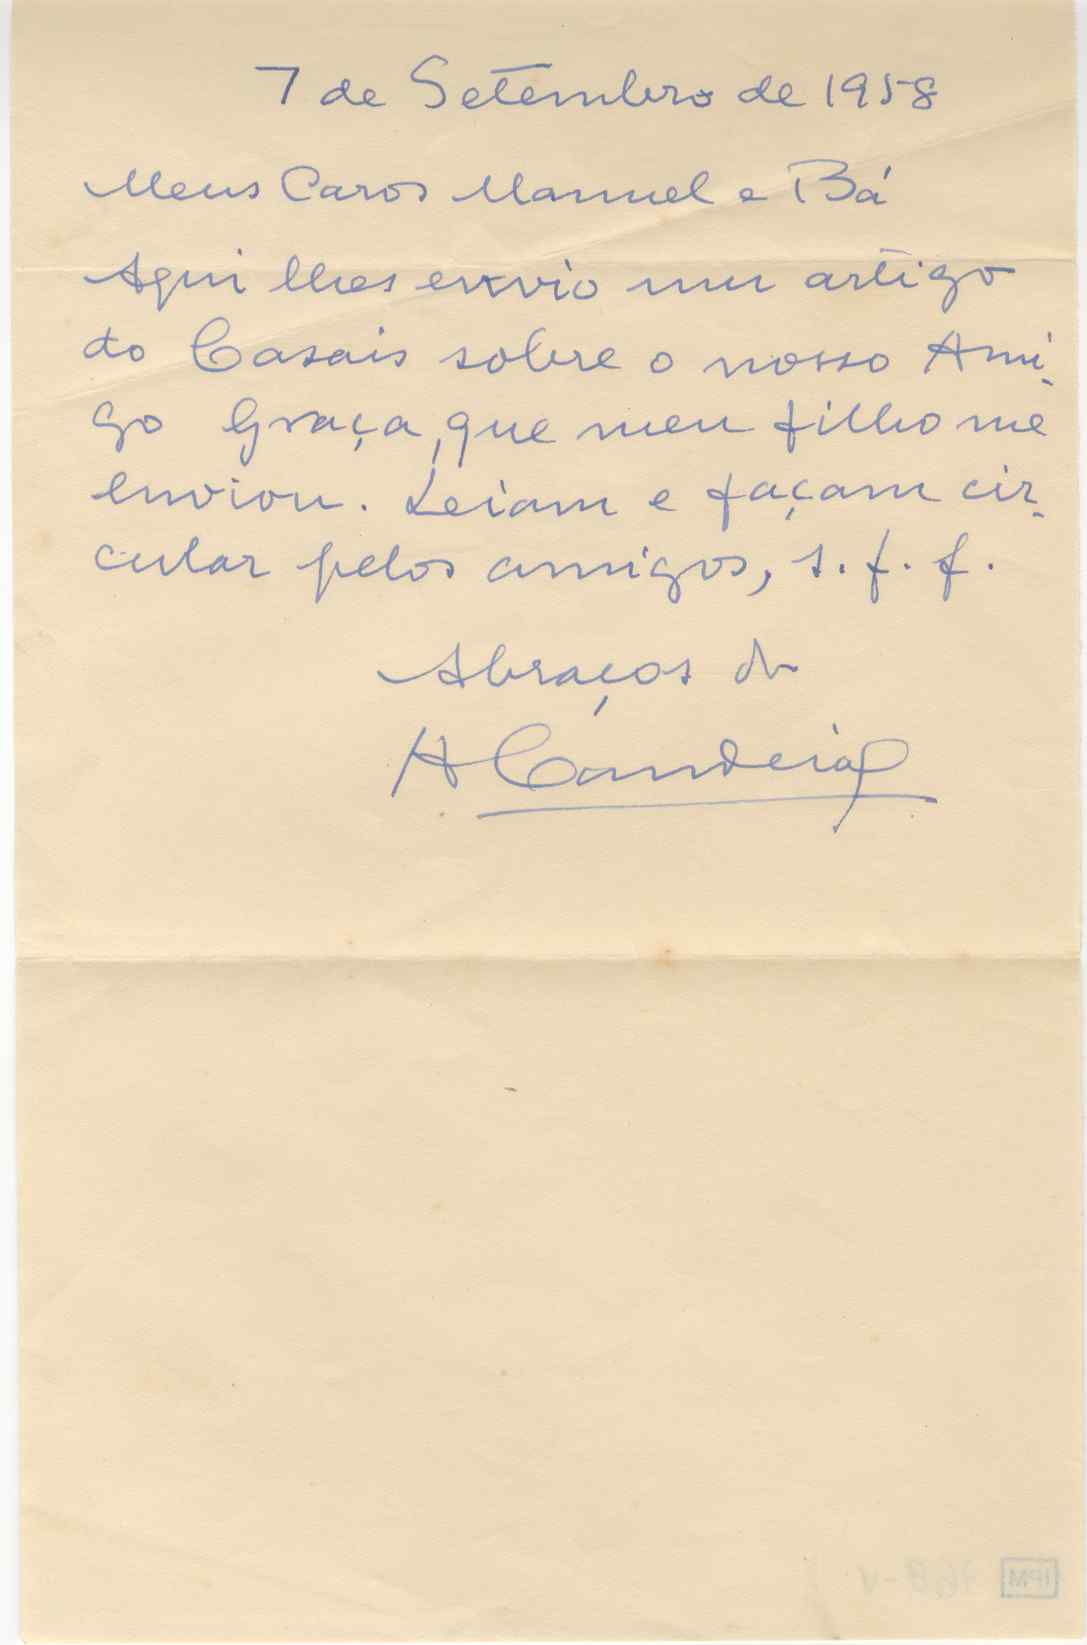 7 de Setembro de 1958
Meus Caros Manuel e Bá
Aqui lhes envio um artigo
do Casais sobre o nosso Ami-
go Graça, que meu filho me
enviou. Leiam e façam cir-
cular pelos amigos, s. f. f.
Abraços do
A Candeias
IPM